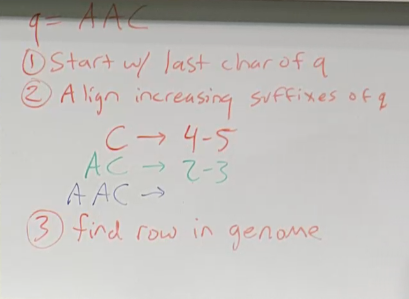 q = AAC
① Start w/ last char of q
② Align increasing suffixes of q
C → 4-5
AC → 2-3
AAC →
③ find row in genome